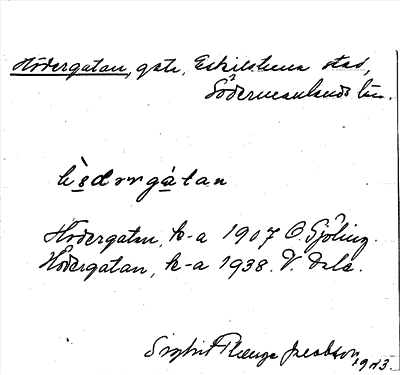 Hödergatan, gata, Eskilstuna stad,
Södermanlands län.
hödərgàtan
Hodergatan, k-a 1907 O. Sjöling.
Hodergatan, k-a 1938. V. Dala.
Sigbrit Plænge Jacobson 1973.